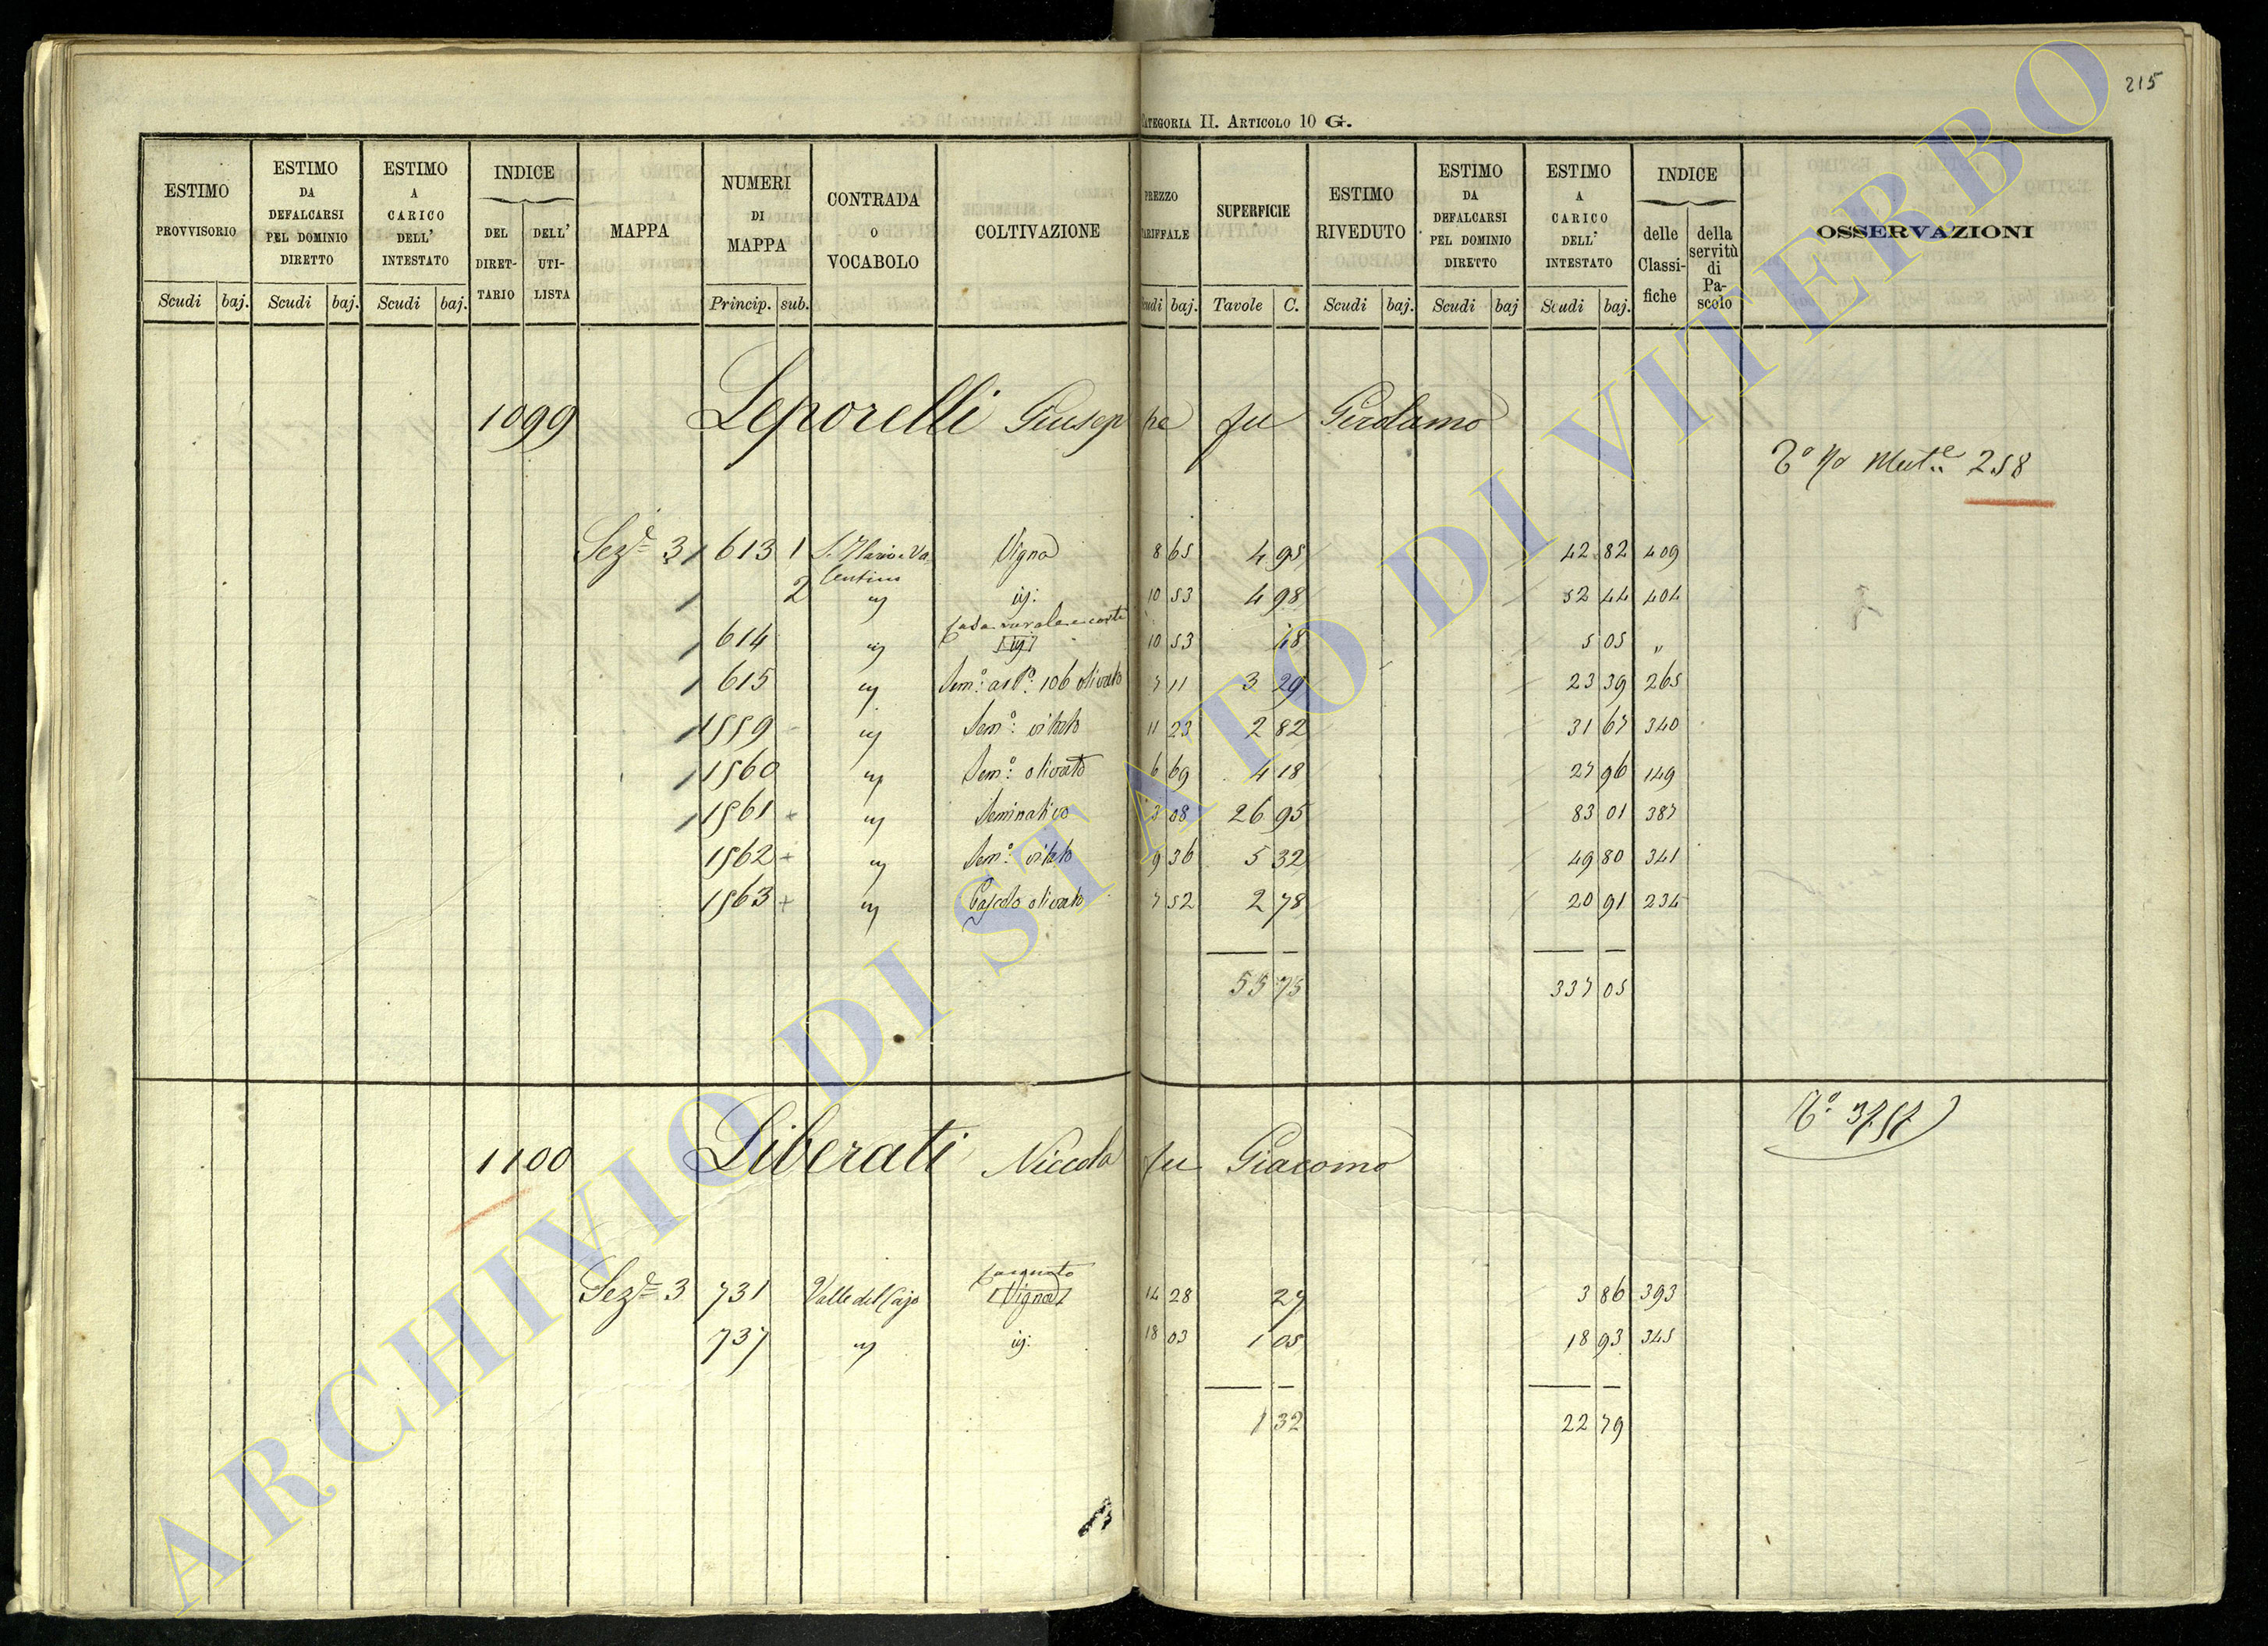 215
CATEGORIA II. ARTICOLO 10 G.
ESTIMO PROVVISORIO Scudi baj.
ESTIMO DA DEFALCARSI PEL DOMINIO DIRETTO Scudi baj.
ESTIMO A CARICO DELL' INTESTATO Scudi baj.
INDICE DEL DIRET- TARIO DELL' UTI- LISTA
MAPPA
NUMERI DI MAPPA Princip. sub.
CONTRADA O VOCABOLO
COLTIVAZIONE
PREZZO TARIFFALE Scudi baj.
SUPERFICIE Tavole C.
ESTIMO RIVEDUTO Scudi baj.
ESTIMO DA DEFALCARSI PEL DOMINIO DIRETTO Scudi baj
ESTIMO A CARICO DELL' INTESTATO Scudi baj.
INDICE delle Classi- fiche della servitù di Pa- scolo
OSSERVAZIONI
1099 Leporelli Giuseppe fu Girolamo
258
Sez.e 3 613 1 S. Ilario e Va Vigna 8 65 4 95 42 82 409
lentino
2 " ig: 10 53 4 98 52 44 404
Casa rurale e corte
614 " ig 10 53 48 5 05 "
615 " Sem.o 106 olivato 7 11 3 29 23 39 265
1559 " Sem.o vitato 11 23 2 82 31 67 340
1560 " Sem.o olivato 6 69 4 18 27 96 149
1561 " Seminativo 3 08 26 95 83 01 387
1562 " Sem.o vitato 9 36 5 32 49 80 341
1563 " Pascolo olivato 7 52 2 78 20 91 234
55 75 337 05
1100 Liberati Niccola fu Giacomo
Canneto
Sez.e 3 731 Valle del Cajo Vigna 14 28 27 3 86 393
737 " ig: 18 03 1 05 18 93 345
1 32 22 79
ARCHIVIO DI STATO DI VITERBO